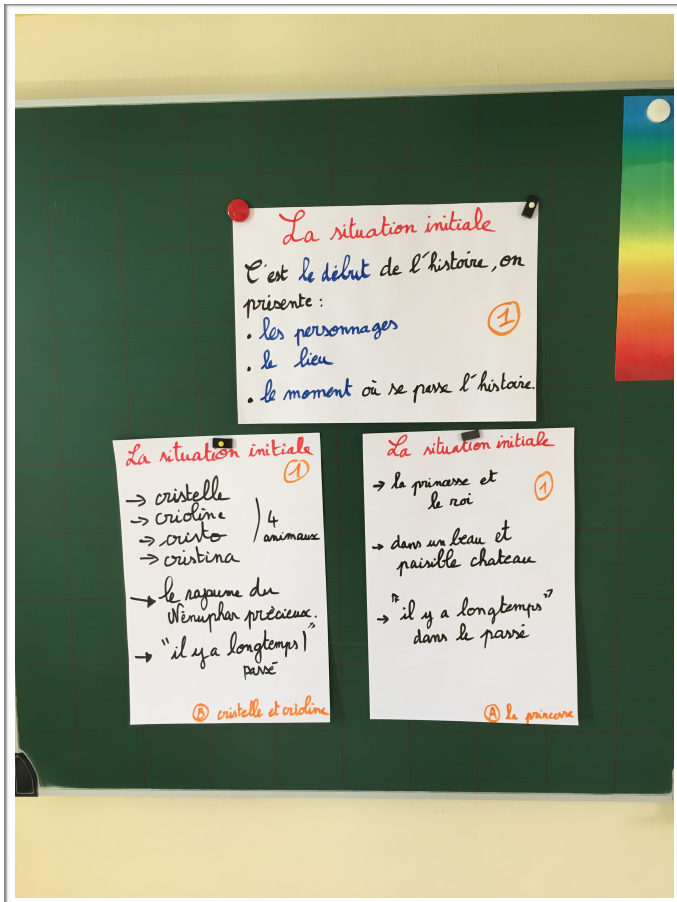 La situation initiale
C'est le début de l'histoire, on
présente :
• les personnages
• le lieu
• le moment où se passe l'histoire.
1
La situation initiale
1
→ cristelle
→ crioline
→ cristo
→ cristina
4
animaux
→ le royaume du
Nénuphar précieux.
→ "il y a longtemps"
passé
B cristelle et crioline
La situation initiale
1
→ la princesse et
le roi
→ dans un beau et
paisible chateau
→ "il y a longtemps"
dans le passé
A la princesse